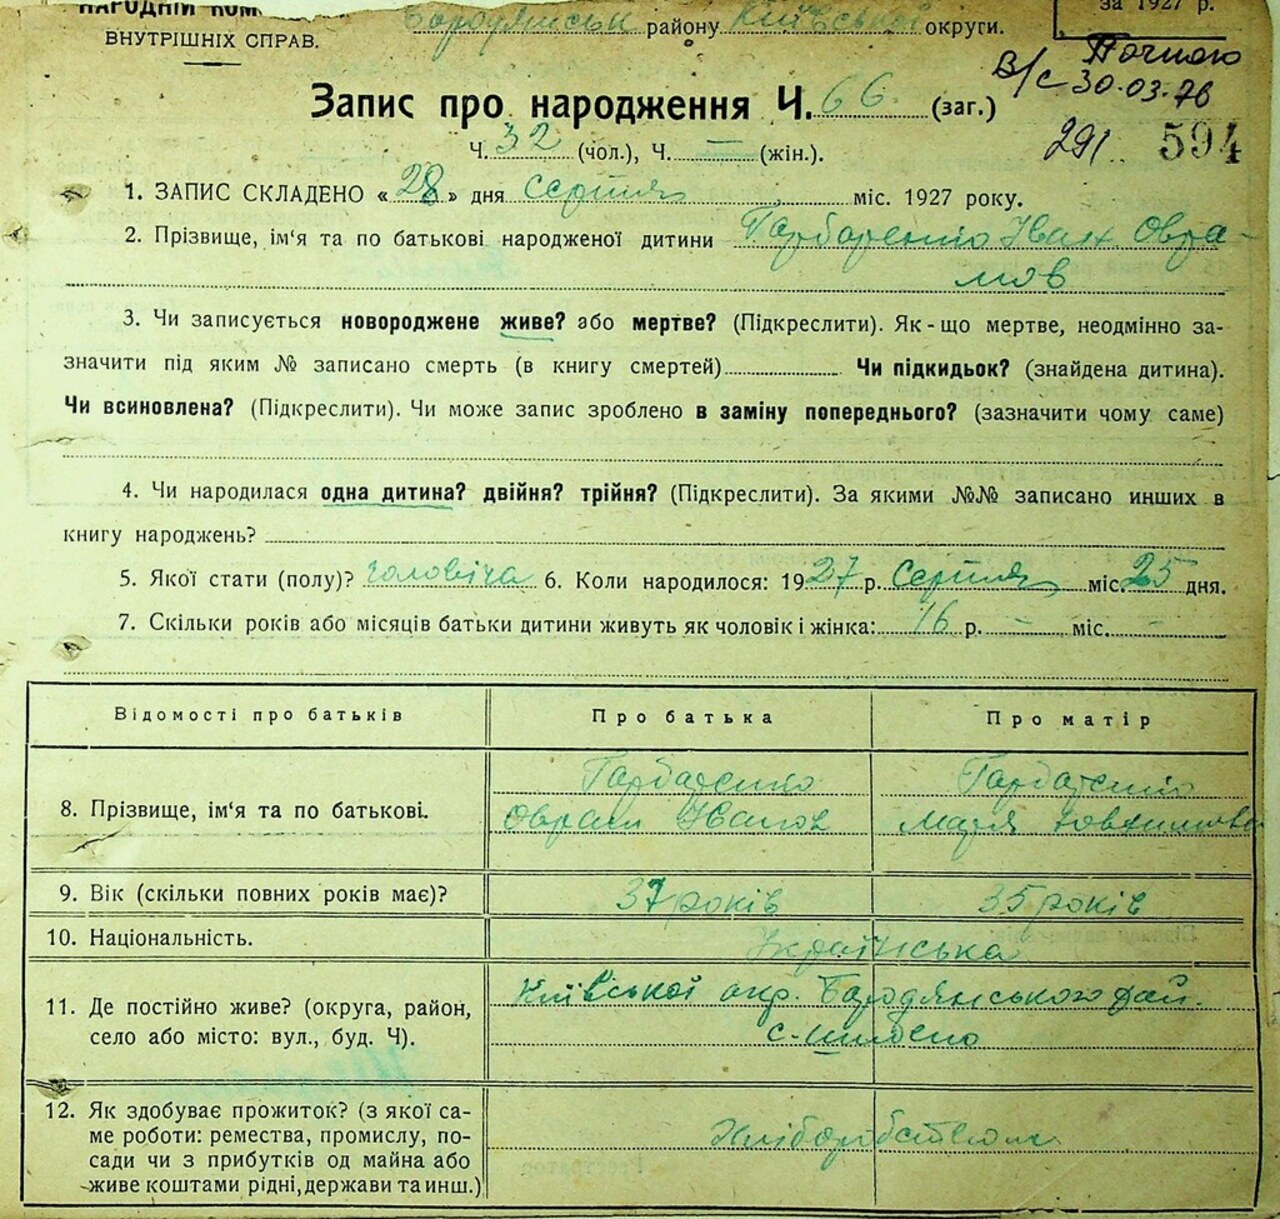 НАРОДНІЙ КОМ
за 1927 р.
ВНУТРІШНІХ СПРАВ.
Бородянськ району Київської округи.
30.03.76
Запис про народження Ч. 66 (заг.)
Ч. 32 (чол.), Ч. — (жін.).
291. 594
1. ЗАПИС СКЛАДЕНО « 28 » дня серпня міс. 1927 року.
2. Прізвище, ім'я та по батькові народженої дитини Іван Овра-
мов
3. Чи записується новороджене живе? або мертве? (Підкреслити). Як-що мертве, неодмінно за-
значити під яким № записано смерть (в книгу смертей) Чи підкидьок? (знайдена дитина).
Чи всиновлена? (Підкреслити). Чи може запис зроблено в заміну попереднього? (зазначити чому саме)
4. Чи народилася одна дитина? двійня? трійня? (Підкреслити). За якими №№ записано инших в
книгу народжень?
5. Якої стати (полу)? чоловіча 6. Коли народилося: 1927 р. Серпня міс. 25 дня.
7. Скільки років або місяців батьки дитини живуть як чоловік і жінка: 16 р. — міс. —
Відомості про батьків Про батька Про матір
8. Прізвище, ім'я та по батькові.
Оврам Іванов Марія
9. Вік (скільки повних років має)? 37 років 35 років
10. Національність. Українська
11. Де постійно живе? (округа, район,
село або місто: вул., буд. Ч).
Київської окр. Бородянського рай.
12. Як здобуває прожиток? (з якої са-
ме роботи: ремества, промислу, по-
сади чи з прибутків од майна або
живе коштами рідні, держави та инш.)
Хліборобством